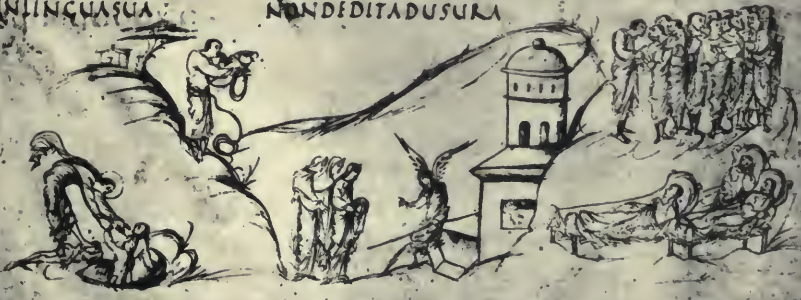 NLINGUASUA NONDEDITADUSURA